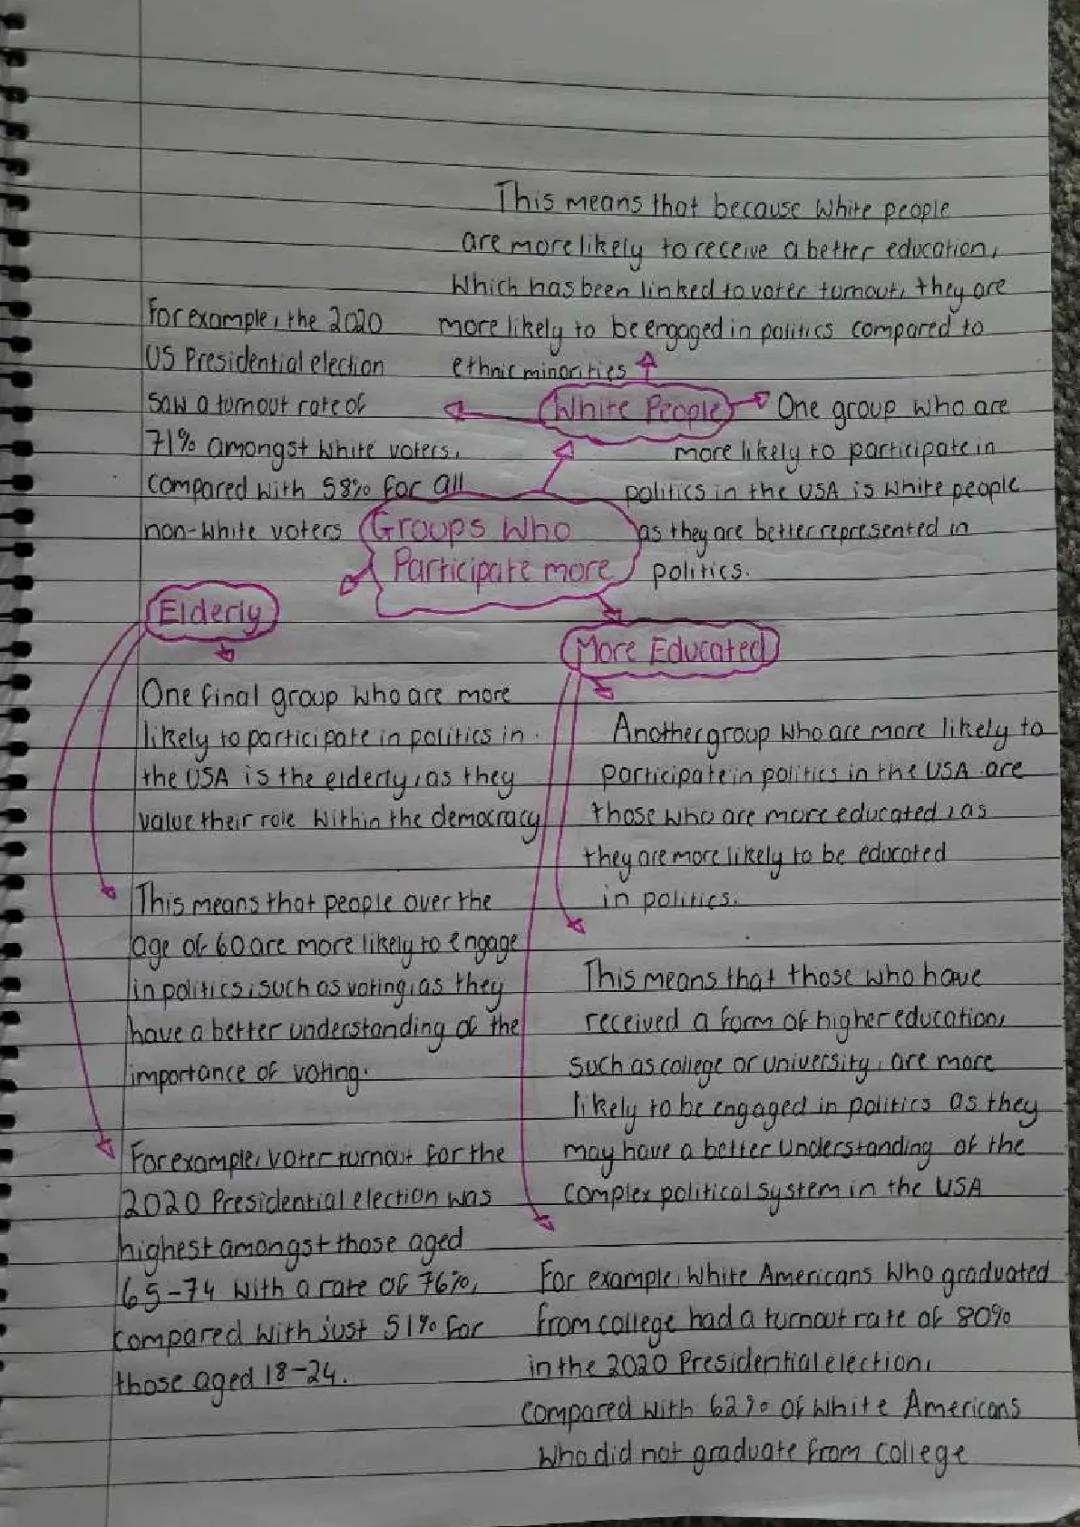 This means that because White people
are more likely to receive a better education,
Which has been linked to voter turnout, they are
more likely to be engaged in politics compared to
ethnic minorities
For example, the 2020
US Presidential election
Saw a turnout rate of
71% amongst White voters,
Compared with 58% for all
non-White voters
White People
One group who are
more likely to participate in
politics in the USA is White people
as they are better represented in
politics.
Groups Who
Participate more
Elderly
One final group who are more
likely to participate in politics in
the USA is the elderly, as they
value their role within the democracy
This means that people over the
age of 60 are more likely to engage
in politics, such as voting, as they
have a better understanding of the
importance of voting.
For example, voter turnout for the
2020 Presidential election was
highest amongst those aged
65-74 with a rate of 76%,
compared with just 51% for
those aged 18-24.
More Educated
Another group who are more likely to
participate in politics in the USA are
those who are more educated, as
they are more likely to be educated
in politics.
This means that those who have
received a form of higher education,
such as college or university, are more
likely to be engaged in politics as they
may have a better Understanding of the
complex political system in the USA
For example, White Americans Who graduated
from college had a turnout rate of 80%
in the 2020 Presidential election,
compared with 62% of White Americans
Who did not graduate from college